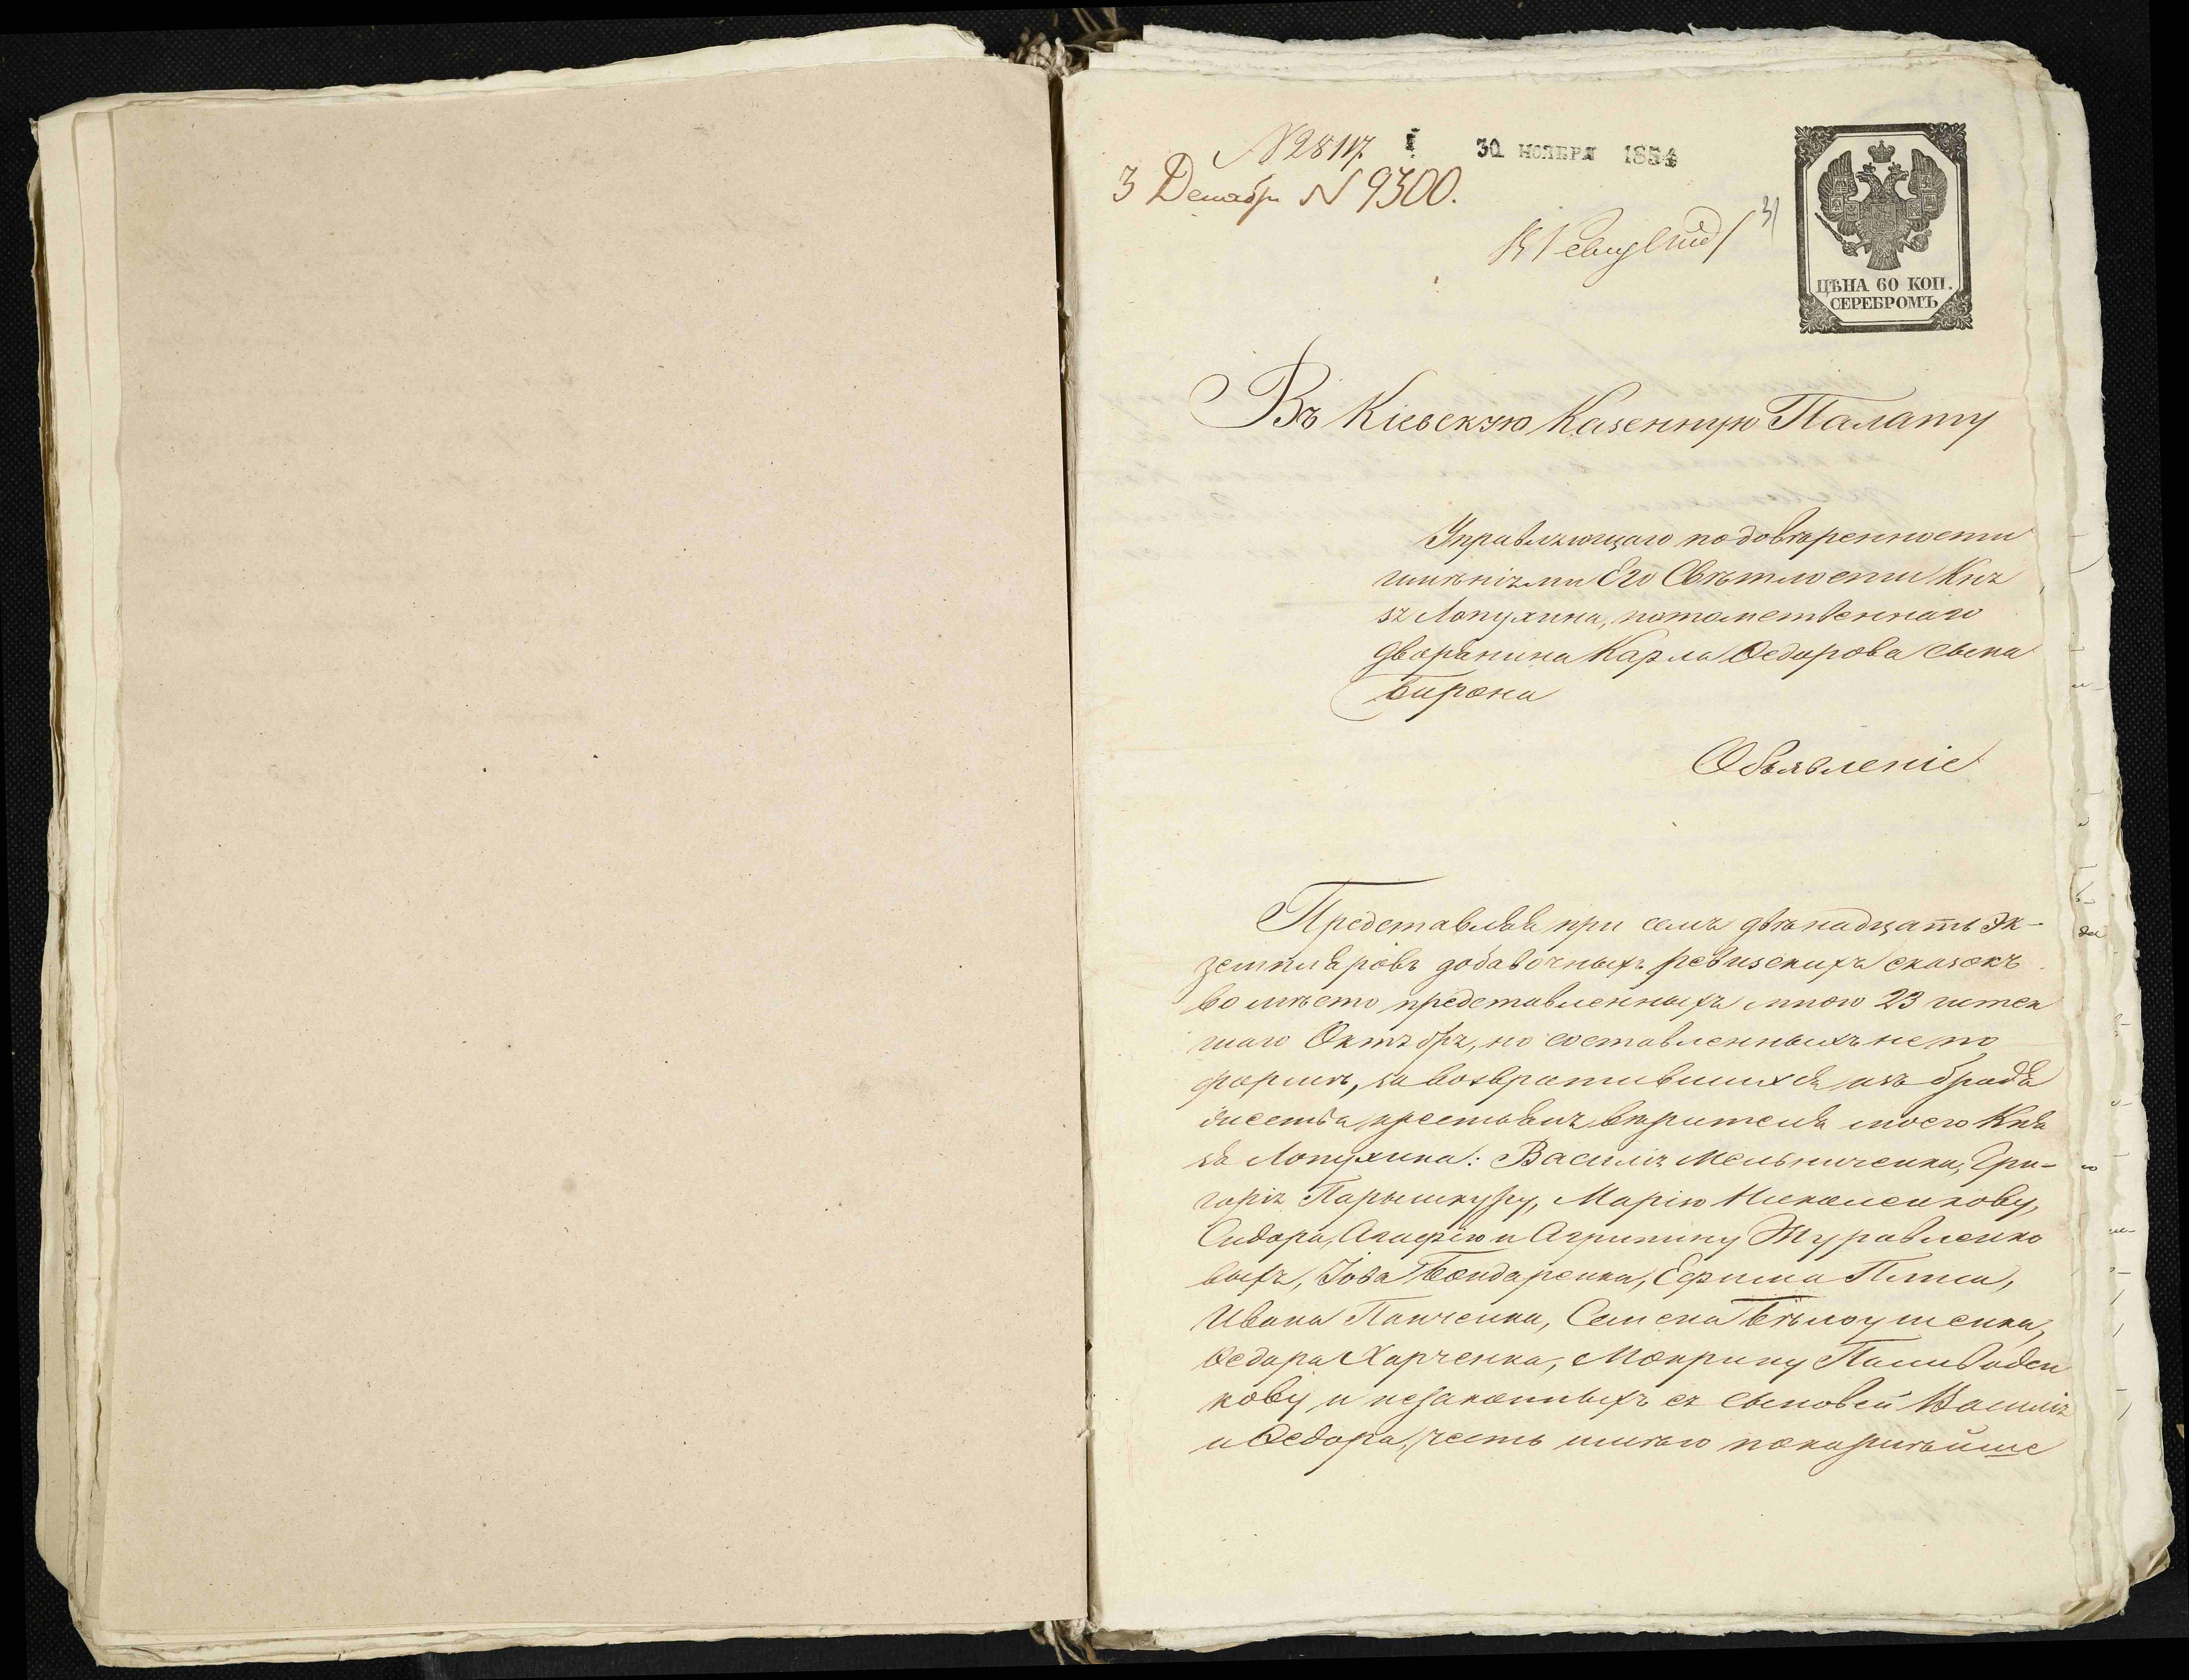 N 28117. 30 НОЯБРЯ 1854
3 Декабр N 9300.
31
ЦѢНА 60 КОП.
СЕРЕБРОМЪ
Въ Кіевскую Казенную Палату
Управляющаго по довѣренности
имѣніями Его Свѣтлости Кня
зя Лопухина, потомственнаго
дворянина Карла Ѳедорова сына
Бирона
Объявленіе
Представляя при семъ двѣнадцать эк-
земпляровъ добавочныхъ ревизскихъ сказокъ
во мѣсто представленныхъ мною 23 истек
шаго Октября, но составленныхъ не по
формѣ, за возвратившихся изъ бродя
жества крестьянъ вѣрителя моего Кня
зя Лопухина: Василія Мельниченка, Гри-
горія Парышкуру, Марію Николенкову,
Сидора, Агафію и Агрипину Журавленко
выхъ, Іова Бондаренка, Ефима Плиса,
Ивана Панченка, Семена Бѣлоушенка,
Ѳедора Харченка, Мокрину
кову и незаконныхъ ея сыновей Василія
и Ѳедора, честь имѣю покорнѣйше